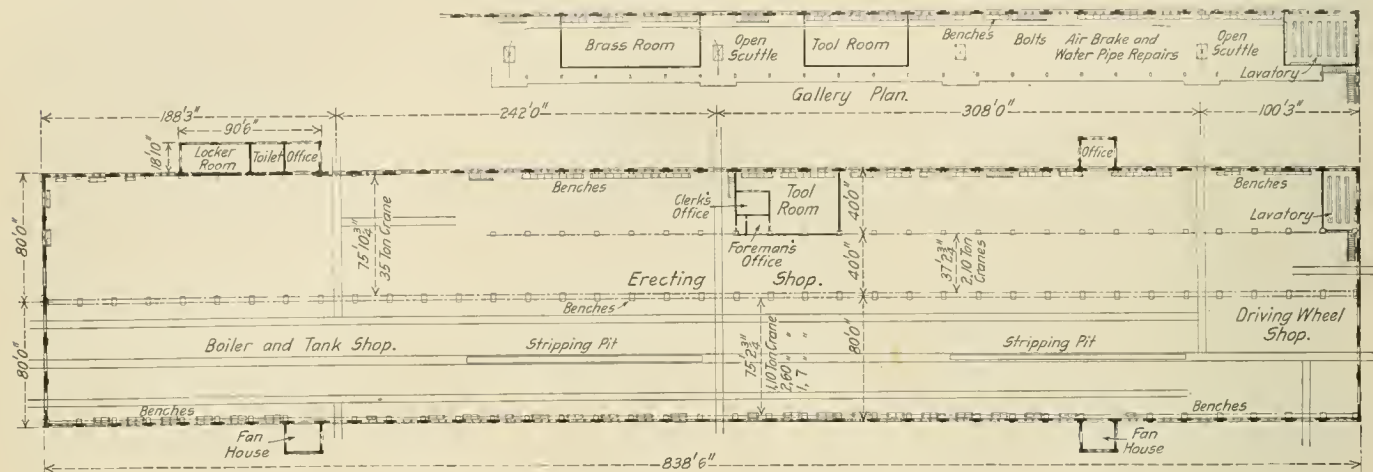 Brass Room
Open
Scuttle
Tool Room
Benches
Bolts
Air Brake and
Water Pipe Repairs
Open
Scuttle
Lavatory
Gallery Plan.
188'3"
242'0"
308'0"
100'3"
90'6"
18'10"
Locker
Room
Toilet
Office
Office
Benches
Clerk's
Office
Tool
Room
Foreman's
Office
Benches
Lavatory
80'0"
75'10 3/4"
35 Ton Crane
40'0"
40'0"
37'2 3/4"
2,10 Ton
Cranes
Erecting Shop.
Benches
Driving Wheel
Shop.
80'0"
Boiler and Tank Shop.
Stripping Pit
75'2 3/4"
1,10 Ton Crane
2,60 " "
1, 7 " "
80'0"
Stripping Pit
Benches
Benches
Fan
House
Fan
House
838'6"